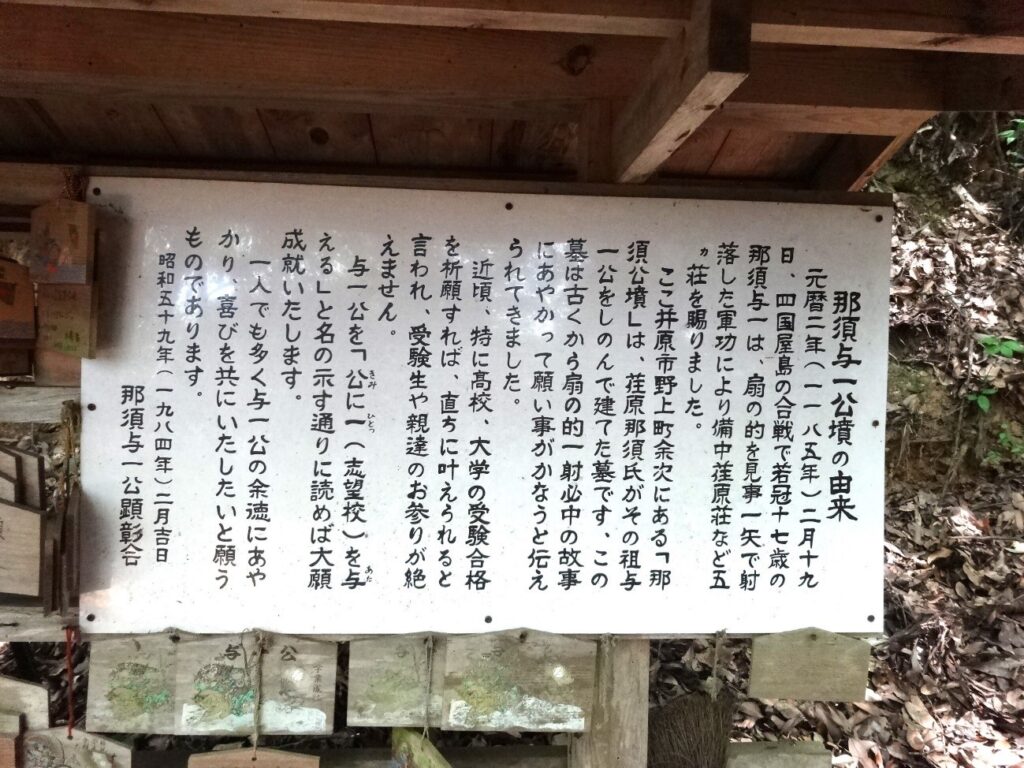 那須与一公墳の由来
元暦二年(一一八五年)二月十九
日、四国屋島の合戦で若冠十七歳の
那須与一は、扇の的を見事一矢で射
落した軍功により備中荏原荘など五
ヵ荘を賜りました。
ここ井原市野上町余次にある「那
須公墳」は、荏原那須氏がその祖与
一公をしのんで建てた墓です、この
墓は古くから扇の的一射必中の故事
にあやかって願い事がかなうと伝え
られてきました。
近頃、特に高校、大学の受験合格
を祈願すれば、直ちに叶えられると
言われ、受験生や親達のお参りが絶
えません。
与一公を「公に一(志望校)を与
きみ ひとつ あた
える」と名の示す通りに読めば大願
成就いたします。
一人でも多く与一公の余徳にあや
かり、喜びを共にいたしたいと願う
ものであります。
昭和五十九年(一九八四年)二月吉日
那須与一公顕彰会
与
一
公